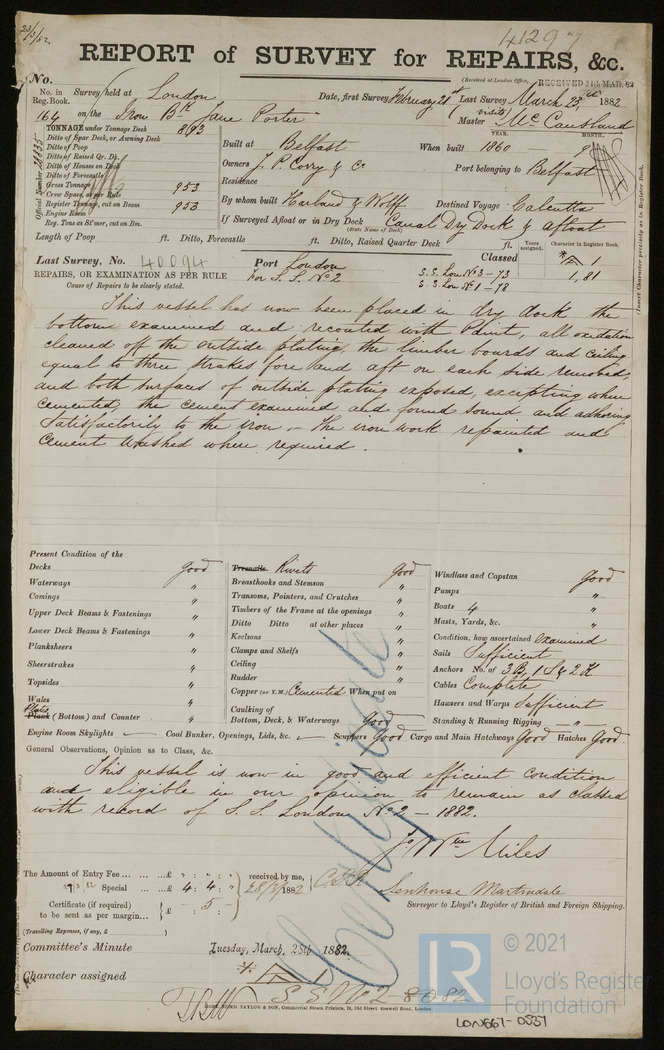 23/3/82.
41297
REPORT of SURVEY for REPAIRS, &c.
(Received at London Office, RECEIVED MAR. 82
No.
No. in Reg. Book. Survey held at London Date, first Survey February 21st Last Survey March 23rd 1882
164 on the Iron Bk Jane Porter Master McCausland
TONNAGE under Tonnage Deck 893
Ditto of Spar Deck, or Awning Deck
Ditto of Poop
Ditto of Raised Qr. Dk.
Ditto of Houses on Deck
Ditto of Forecastle
Gross Tonnage 953
Crew Space, as per Rule
Register Tonnage, cut on Beam 953
Engine Room
Reg. Tons as St'mer, cut on Bm.
Official Number
YEAR. MONTH.
Built at Belfast When built 1860 9
Owners J. P. Corry & Co Port belonging to Belfast
Residence
By whom built Harland & Wolff Destined Voyage Calcutta
If Surveyed Afloat or in Dry Dock Canal Dry Dock & afloat
(State Name of Dock)
Length of Poop ft. Ditto, Forecastle ft. Ditto, Raised Quarter Deck ft.
Years assigned. Character in Register Book.
(Insert Character precisely as in Register Book.
Last Survey, No. 40094 Port London Classed
1
1,81
REPAIRS, OR EXAMINATION AS PER RULE For S.S. No 2 S.S. Lon No 3 - 73
Cause of Repairs to be clearly stated. S S Lon No 1 - 78
This vessel has now been placed in dry dock the
bottom examined and recoated with Paint, all oxidation
cleaned off the outside plating, the limber boards and ceiling
equal to three strakes fore and aft on each side removed
and both surfaces of outside plating exposed, excepting where
cemented, the cement examined and found sound and adhering
satisfactorily to the iron, - the iron work repainted and
cement washed where required.
Present Condition of the
Decks Good
Waterways "
Comings "
Upper Deck Beams & Fastenings "
Lower Deck Beams & Fastenings "
Planksheers "
Sheerstrakes "
Topsides "
Wales "
Plates
Plank (Bottom) and Counter "
Treenails Rivets Good
Breasthooks and Stemson "
Transoms, Pointers, and Crutches "
Timbers of the Frame at the openings "
Ditto Ditto at other places "
Keelsons "
Clamps and Shelfs "
Ceiling "
Rudder "
Copper (or Y.M.) Cemented When put on
Caulking of
Bottom, Deck, & Waterways Good
Windlass and Capstan Good
Pumps "
Boats 4 "
Masts, Yards, &c. "
Condition, how ascertained Examined
Sails Sufficient
Anchors No. of 3 B, 1 S & 2 K
Cables Complete
Hawsers and Warps Sufficient
Standing & Running Rigging - " -
Engine Room Skylights Coal Bunker, Openings, Lids, &c. Scuppers Good Cargo and Main Hatchways Good Hatches Good
General Observations, Opinion as to Class, &c.
This vessel is now in good and efficient condition
and eligible in our opinion to remain as classed
with record of S. S. London No 2 - 1882.
Certificate
Wm Miles
The Amount of Entry Fee £ " : " : "
Special £ 4 : 4 : "
received by me,
28/3/1882
Certificate (if required) to be sent as per margin £ : 5 :
Senhouse Martindale
Surveyor to Lloyd's Register of British and Foreign Shipping.
(Travelling Expenses, if any, £ )
Committee's Minute Tuesday, March, 28th 1882.
Character assigned 1
S S No 2 - 82
TAYLOR & SON, Commercial Steam Printers, 19, Old Street Goswell Road, London.
LR
© 2021
Lloyd's Register
Foundation
LON667-0537